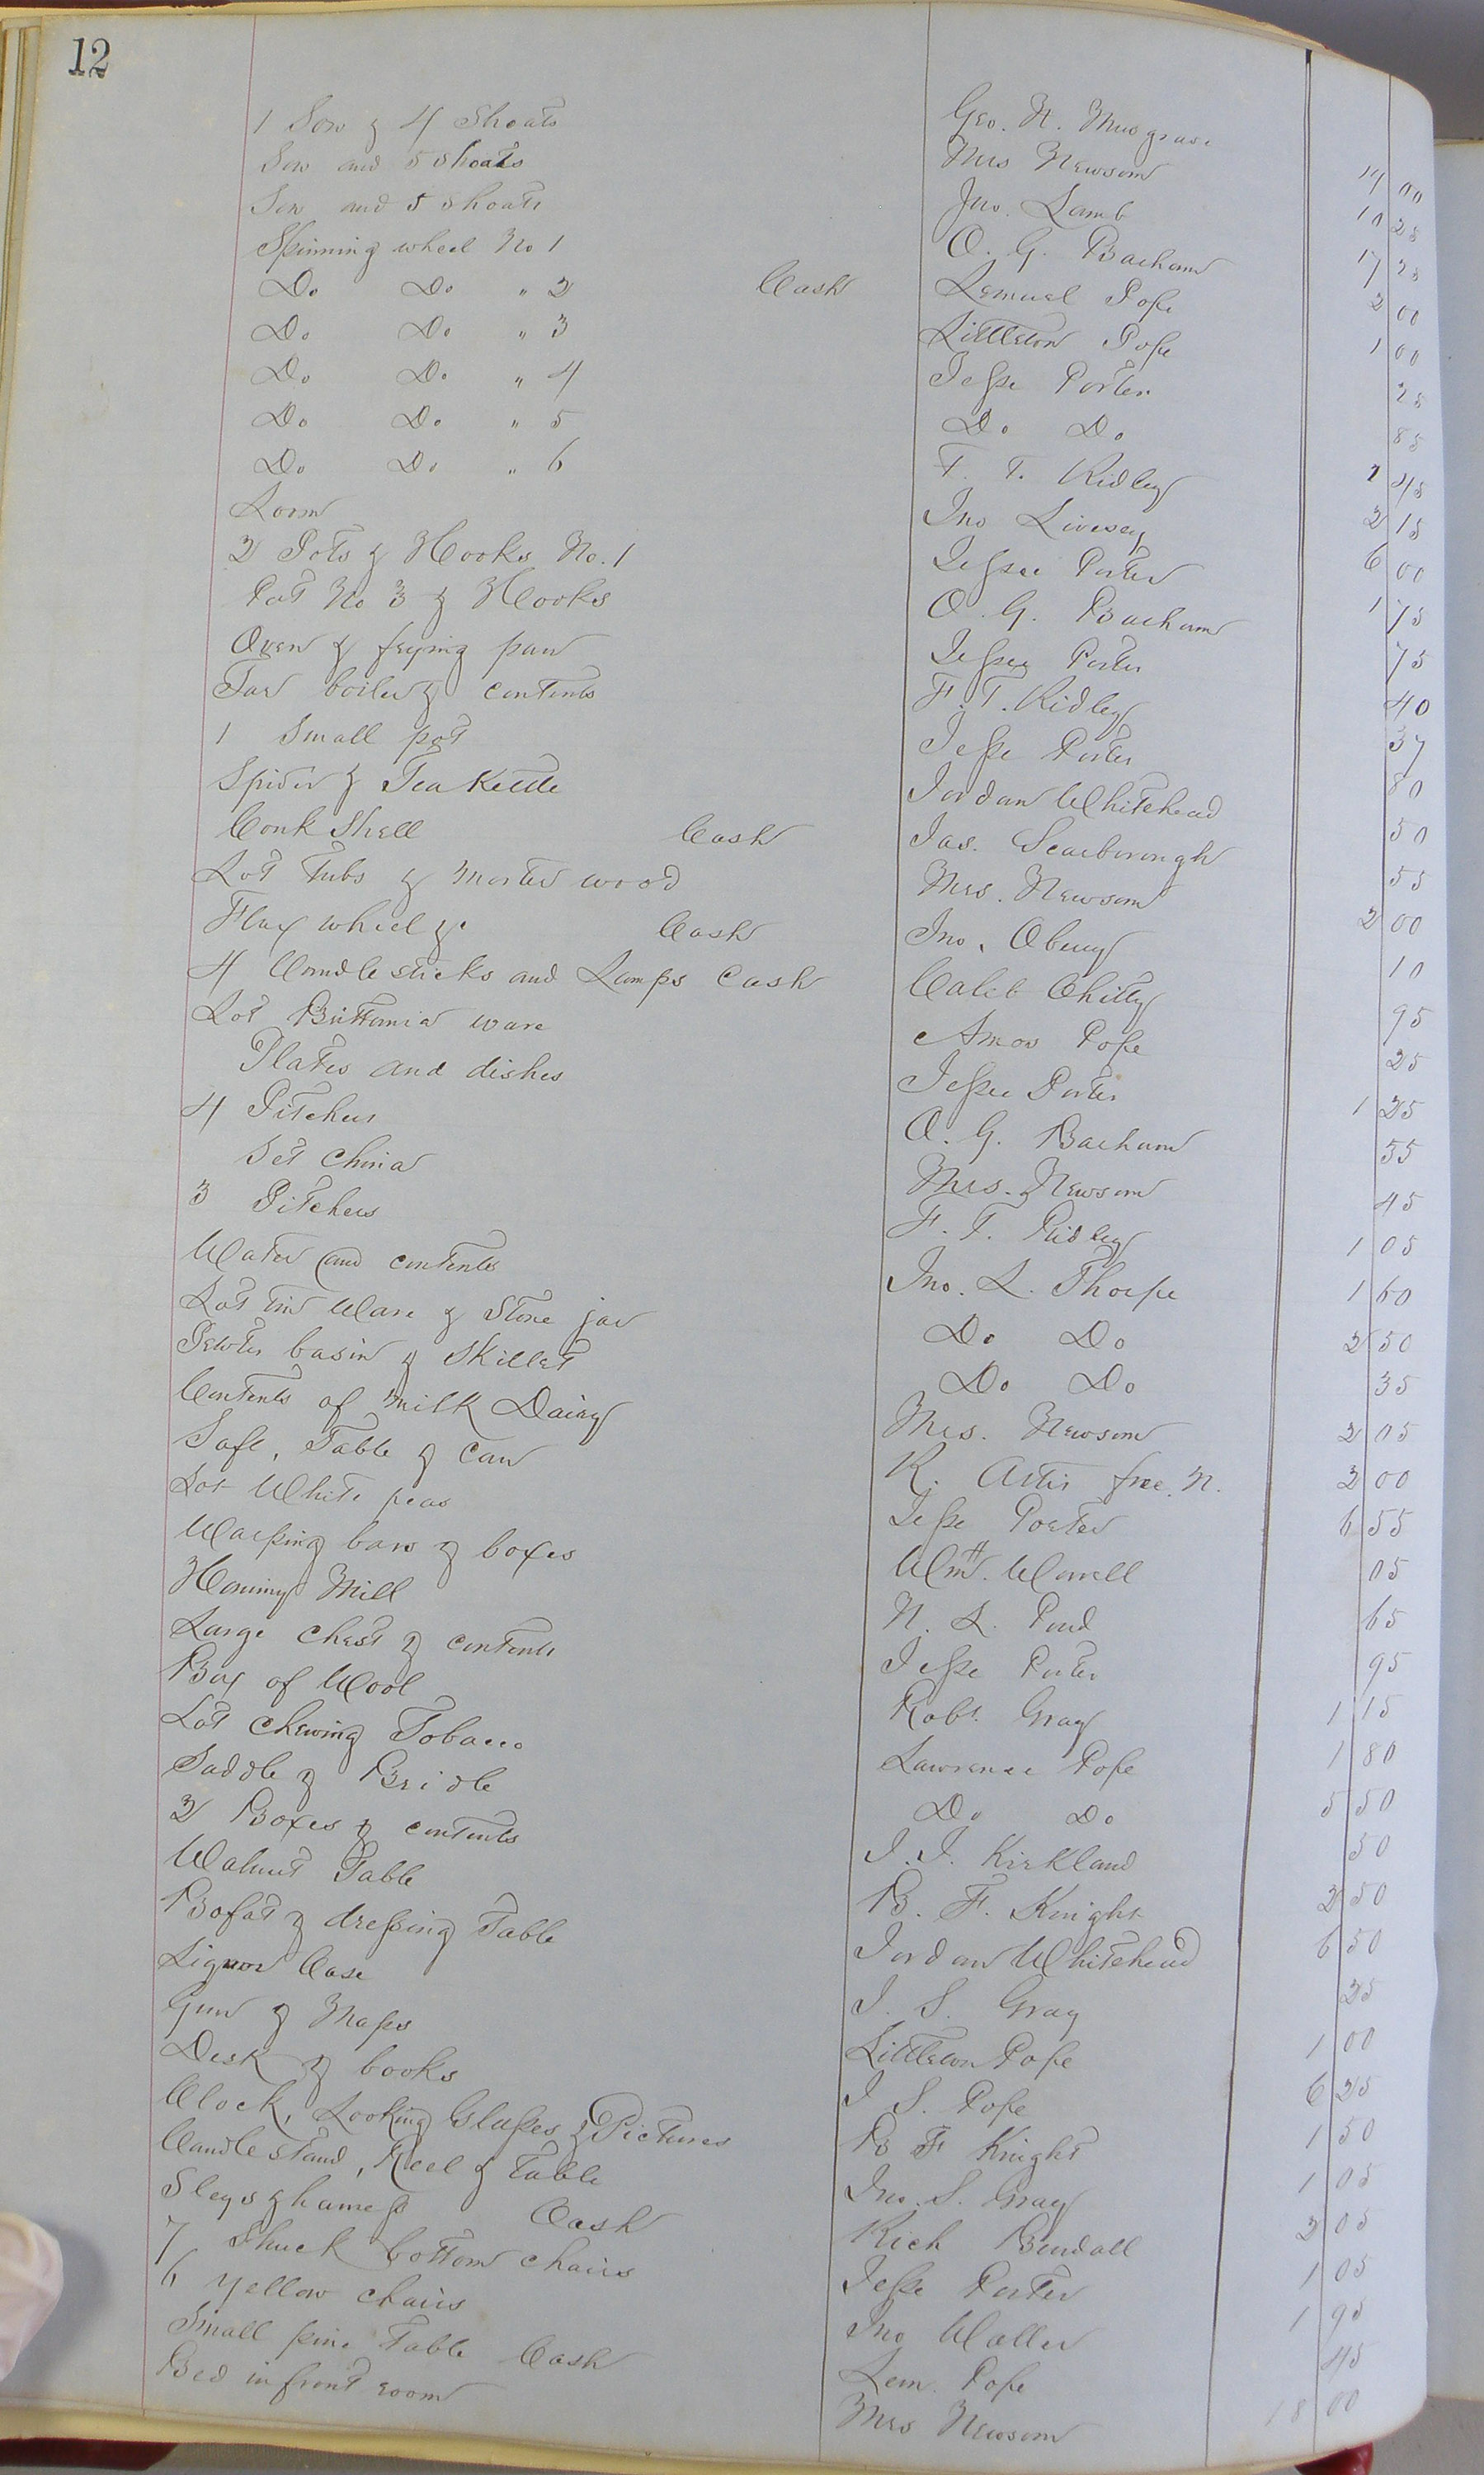 12
1 Sow & 4 Shoats Geo. N. Musgrave 14 00
Sow and 5 shoats Mrs Newsom 10 25
Sow and 5 shoats Jno. Lamb 17 25
Spinning wheel No 1 O. G. Bacham 2 00
Do Do " 2 Cash Lemuel Pope 1 00
Do Do " 3 Littleton Pope 25
Do Do " 4 Jesse Porter 85
Do Do " 5 Do Do 1 45
Do Do " 6 F. T. Ridley 2 15
Loom Jno Livesay 6 00
2 Pots & Hooks No. 1 Jessee Porter 1 75
Pot No 3 & Hooks O. G. Bacham 75
Oven & frying pan Jessee Porter 40
Tar boiler & contents F. T. Ridley 37
1 Small pot Jesse Porter 80
Spider & Tea Kettle Jordan Whitehead 50
Conk Shell Cash Jas. Scarborough 55
Lot Tubs & morter wood Mrs. Newsom 2 00
Flax wheel &c Cash Jno. Obeny 10
4 Candle sticks and Lamps Cash Caleb Chitty 95
Lot Brittania ware Amos Pope 25
Plates and dishes Jessee Porter 1 25
4 Pitchers O. G. Bacham 55
Set China Mrs. Newsom 45
3 Pitchers F. T. Ridley 1 05
Water and contents Jno. L. Thorpe 1 60
Lot tin Ware & Stone jar Do Do 2 50
Pewter basin & Skillet Do Do 35
Contents of milk Dairy Mrs. Newsom 2 05
Safe, Table & Can R. Artis free. N. 2 00
Lot White peas Jesse Porter 6 55
Warping bars & boxes Wm H. Worrell 05
Hominy Mill N. L. Pond 65
Large chest & contents Jesse Porter 95
Box of Wool Robt. Gray 1 15
Lot Chewing Tobacco Lawrence Pope 1 80
Saddle & Bridle Do Do 5 50
2 Boxes & contents J. J. Kirkland 50
Walnut Table B. F. Knight 2 50
Bofat & dressing Table Jordan Whitehead 6 50
Liquor Case J. S. Gray 25
Gun & Maps Littleton Pope 1 00
Desk & books J S. Pope 6 25
Clock, Looking Glasses & Pictures B F Knight 1 50
Candle stand, Reel & Table Jno. S. Gray 1 05
Sleys & harness Cash Rich Bendall 2 05
7 Shuck bottom chairs Jesse Porter 1 05
6 yellow chairs Jno Waller 1 95
Small pine Table Cash Lem. Pope 45
Bed in front room Mrs Newsom 18 00